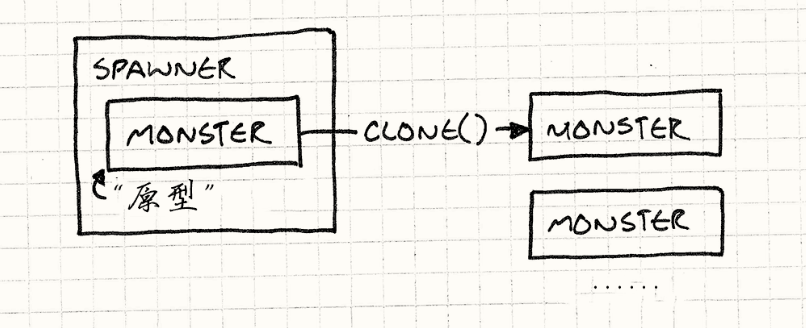 SPAWNER
MONSTER
"原型"
CLONE()
MONSTER
MONSTER
......